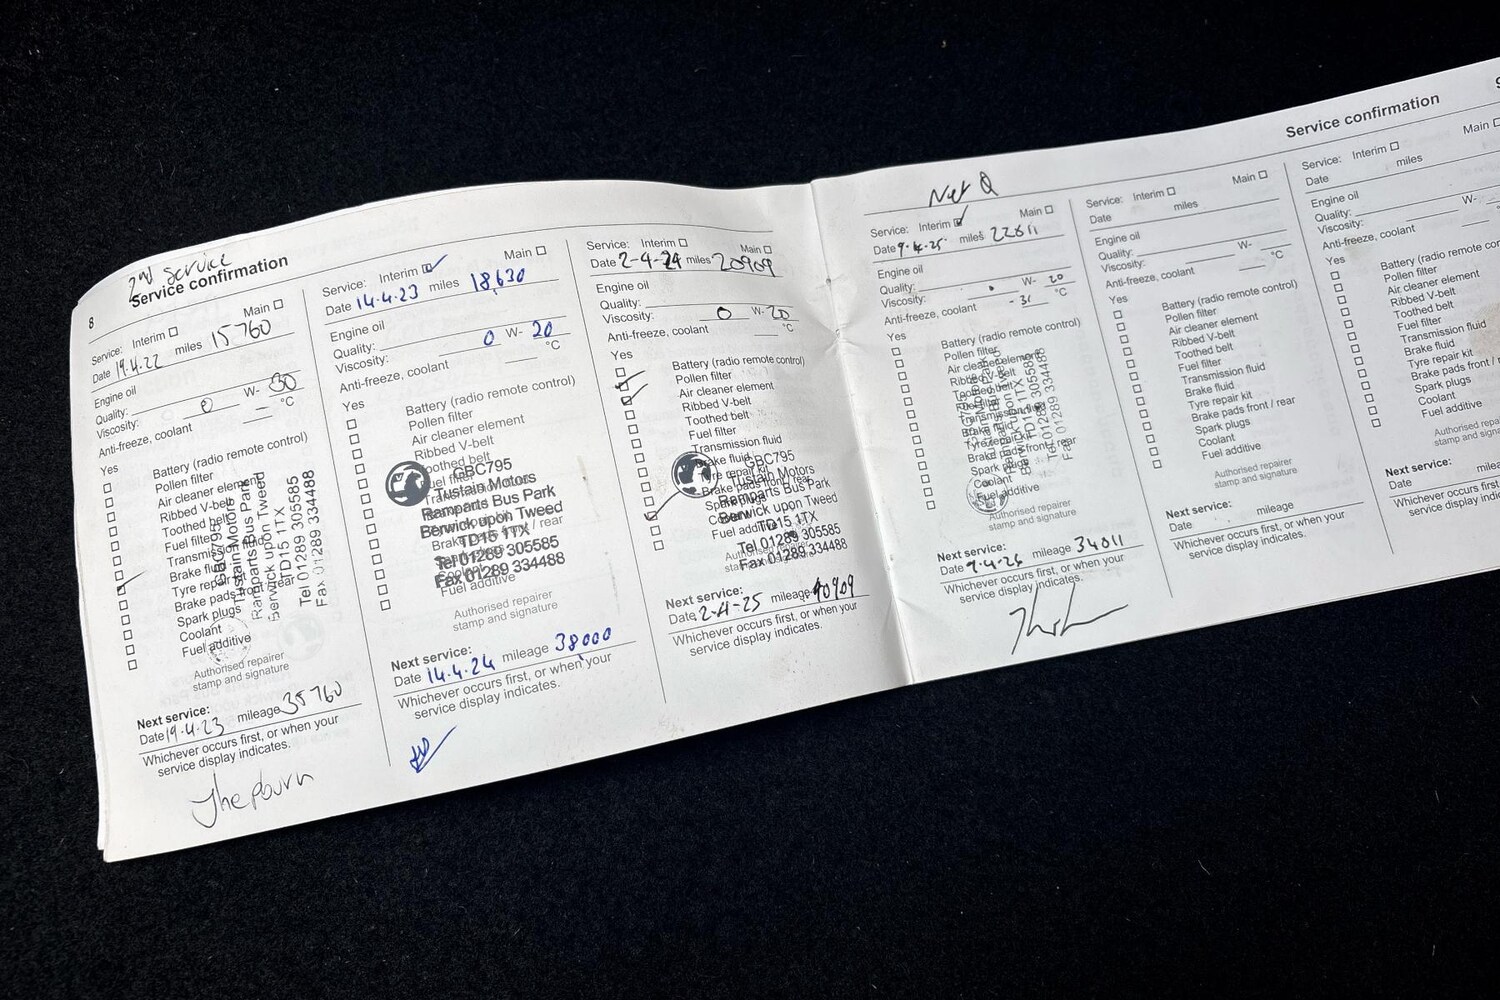 8
2nd Service
Service confirmation
Service: Interim Main
Date 19.4.22 miles 15760
Engine oil
Quality:
Viscosity: 0 W- 30
Anti-freeze, coolant °C
Yes
Battery (radio remote control)
Pollen filter
Air cleaner element
Ribbed V-belt
Toothed belt
Fuel filter
Transmission fluid
Brake fluid
Tyre repair kit
Brake pads front / rear
Spark plugs
Coolant
Fuel additive
GBC795
Tustain Motors
Ramparts Bus Park
Berwick upon Tweed
TD15 1TX
Tel 01289 305585
Fax 01289 334488
Authorised repairer
stamp and signature
Next service:
Date 19.4.23 mileage 35760
Whichever occurs first, or when your
service display indicates.
Jhepburn
Service: Interim Main
Date 14.4.23 miles 18,630
Engine oil
Quality:
Viscosity: 0 W- 20
Anti-freeze, coolant °C
Yes
Battery (radio remote control)
Pollen filter
Air cleaner element
Ribbed V-belt
Toothed belt
Fuel filter
GBC795
Tustain Motors
Ramparts Bus Park
Berwick upon Tweed
TD15 1TX
Tel 01289 305585
Fax 01289 334488
Fuel additive
Authorised repairer
stamp and signature
Next service:
Date 14.4.24 mileage 38000
Whichever occurs first, or when your
service display indicates.
Service: Interim Main
Date 2-4-24 miles 20909
Engine oil
Quality:
Viscosity: 0 W- 20
Anti-freeze, coolant °C
Yes
Battery (radio remote control)
Pollen filter
Air cleaner element
Ribbed V-belt
Toothed belt
Fuel filter
Transmission fluid
Brake fluid
Tyre repair kit
Brake pads front / rear
Spark plugs
Coolant
Fuel additive
GBC795
Tustain Motors
Ramparts Bus Park
Berwick upon Tweed
TD15 1TX
Tel 01289 305585
Fax 01289 334488
Next service:
Date 2-4-25 mileage 40909
Whichever occurs first, or when your
service display indicates.
Service confirmation
Service: Interim Main
Date 9.4.25 miles 22611
Engine oil
Quality:
Viscosity: W- 20
Anti-freeze, coolant °C
Yes
Battery (radio remote control)
Pollen filter
Air cleaner element
Ribbed V-belt
Toothed belt
Fuel filter
Transmission fluid
Brake fluid
Tyre repair kit
Brake pads front / rear
Spark plugs
Coolant
Fuel additive
GBC795
TD15 1TX
Tel 01289 305585
Fax 01289 334488
Authorised repairer
stamp and signature
Next service:
Date 9.4.26 mileage 34011
Whichever occurs first, or when your
service display indicates.
Service: Interim Main
Date miles
Engine oil
Quality:
Viscosity: W-
Anti-freeze, coolant °C
Yes
Battery (radio remote control)
Pollen filter
Air cleaner element
Ribbed V-belt
Toothed belt
Fuel filter
Transmission fluid
Brake fluid
Tyre repair kit
Brake pads front / rear
Spark plugs
Coolant
Fuel additive
Authorised repairer
stamp and signature
Next service:
Date mileage
Whichever occurs first, or when your
service display indicates.
Service: Interim Main
Date miles
Engine oil
Quality:
Viscosity: W-
Anti-freeze, coolant
Yes
Battery (radio remote
Pollen filter
Air cleaner element
Ribbed V-belt
Toothed belt
Fuel filter
Transmission fluid
Brake fluid
Tyre repair kit
Brake pads front /
Spark plugs
Coolant
Fuel additive
Authorised
stamp and
Next service:
Date
Whichever occurs first, or
service display indicates.